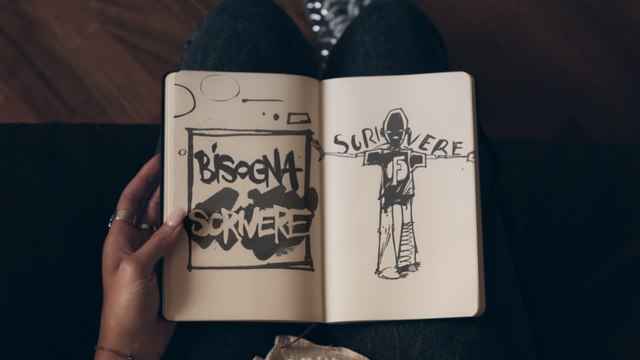 BISOGNA
SCRIVERE
SCRIVERE
15